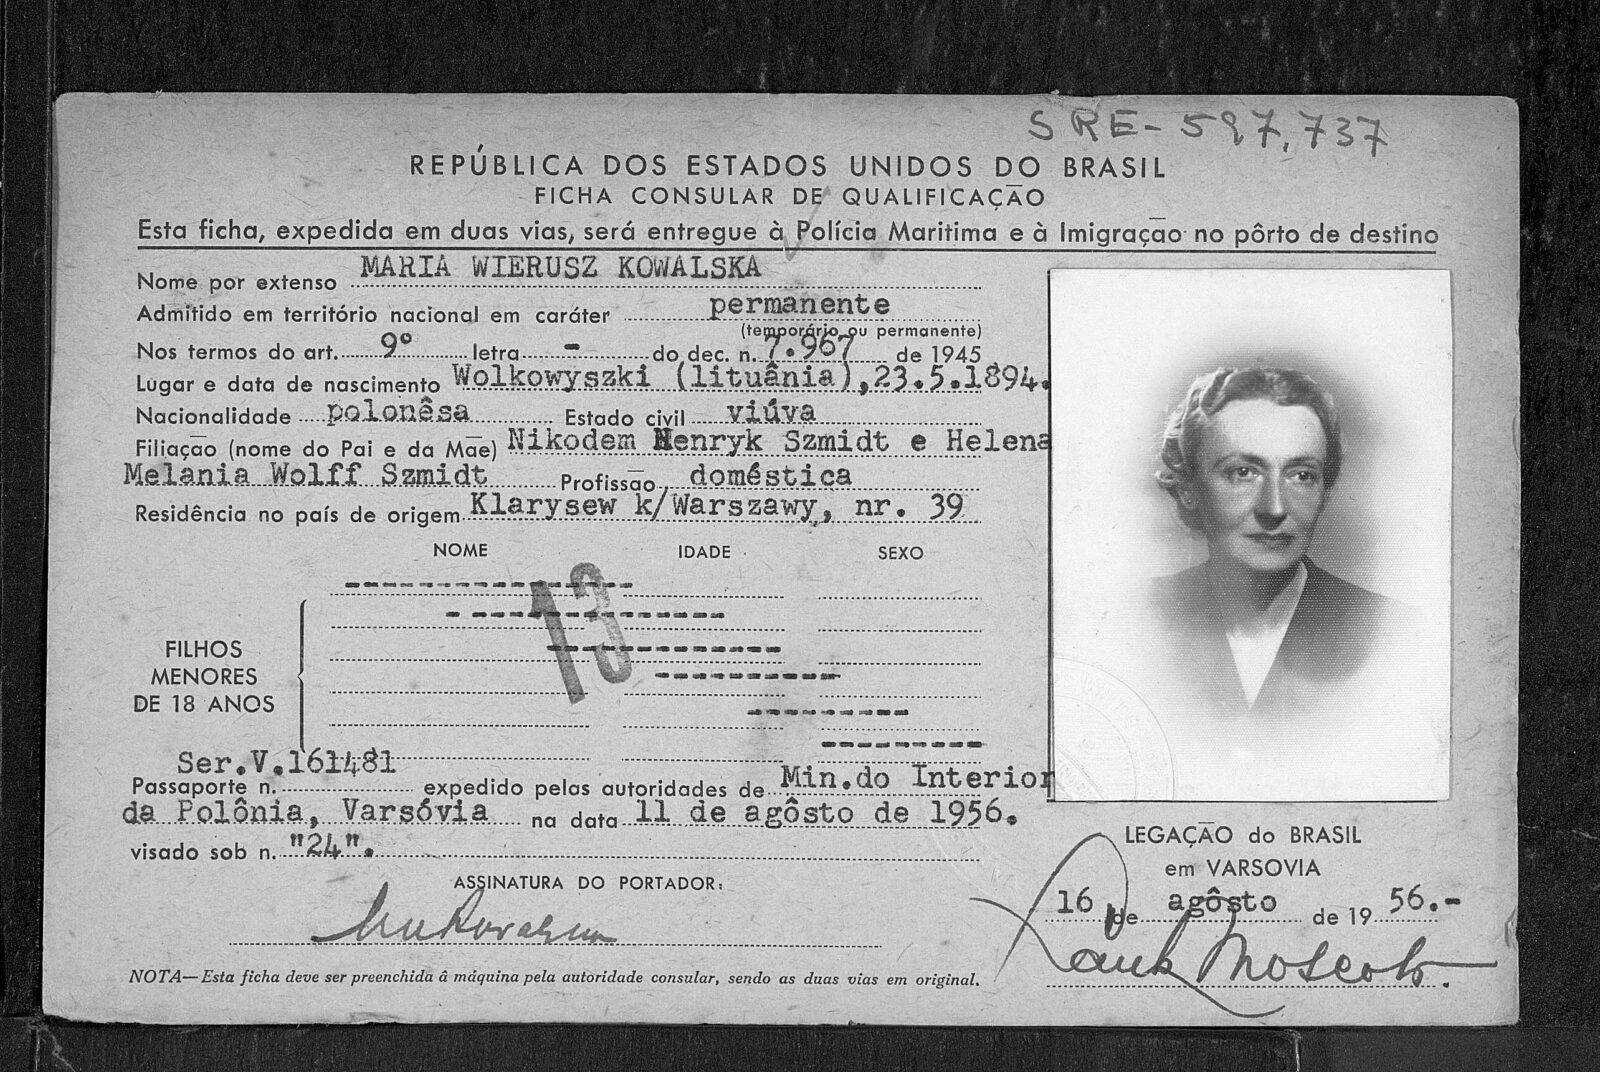 SRE-597.737
REPÚBLICA DOS ESTADOS UNIDOS DO BRASIL
FICHA CONSULAR DE QUALIFICAÇÃO
Esta ficha, expedida em duas vias, será entregue à Polícia Maritima e à Imigração no pôrto de destino
Nome por extenso MARIA WIERUSZ KOWALSKA
Admitido em território nacional em caráter permanente
(temporário ou permanente)
Nos termos do art. 9º letra - do dec. n. 7.967 de 1945
Lugar e data de nascimento Wolkowyszki (lituânia),23.5.1894.
Nacionalidade polonêsa Estado civil viúva
Filiação (nome do Pai e da Mãe) Nikodem Henryk Szmidt e Helena
Melania Wolff Szmidt Profissão doméstica
Residência no país de origem Klarysew k/Warszawy, nr. 39
NOME IDADE SEXO
13
FILHOS
MENORES
DE 18 ANOS
Passaporte n. Ser.V.161481 expedido pelas autoridades de Min.do Interior
da Polônia, Varsóvia na data 11 de agôsto de 1956.
visado sob n. "24".
ASSINATURA DO PORTADOR:
NOTA—Esta ficha deve ser preenchida â máquina pela autoridade consular, sendo as duas vias em original.
LEGAÇÃO do BRASIL
em VARSOVIA
16 de agôsto de 19 56.-